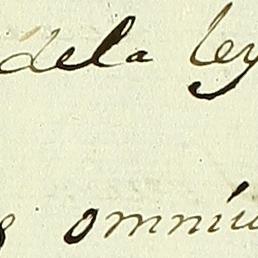 dela ley
omniu